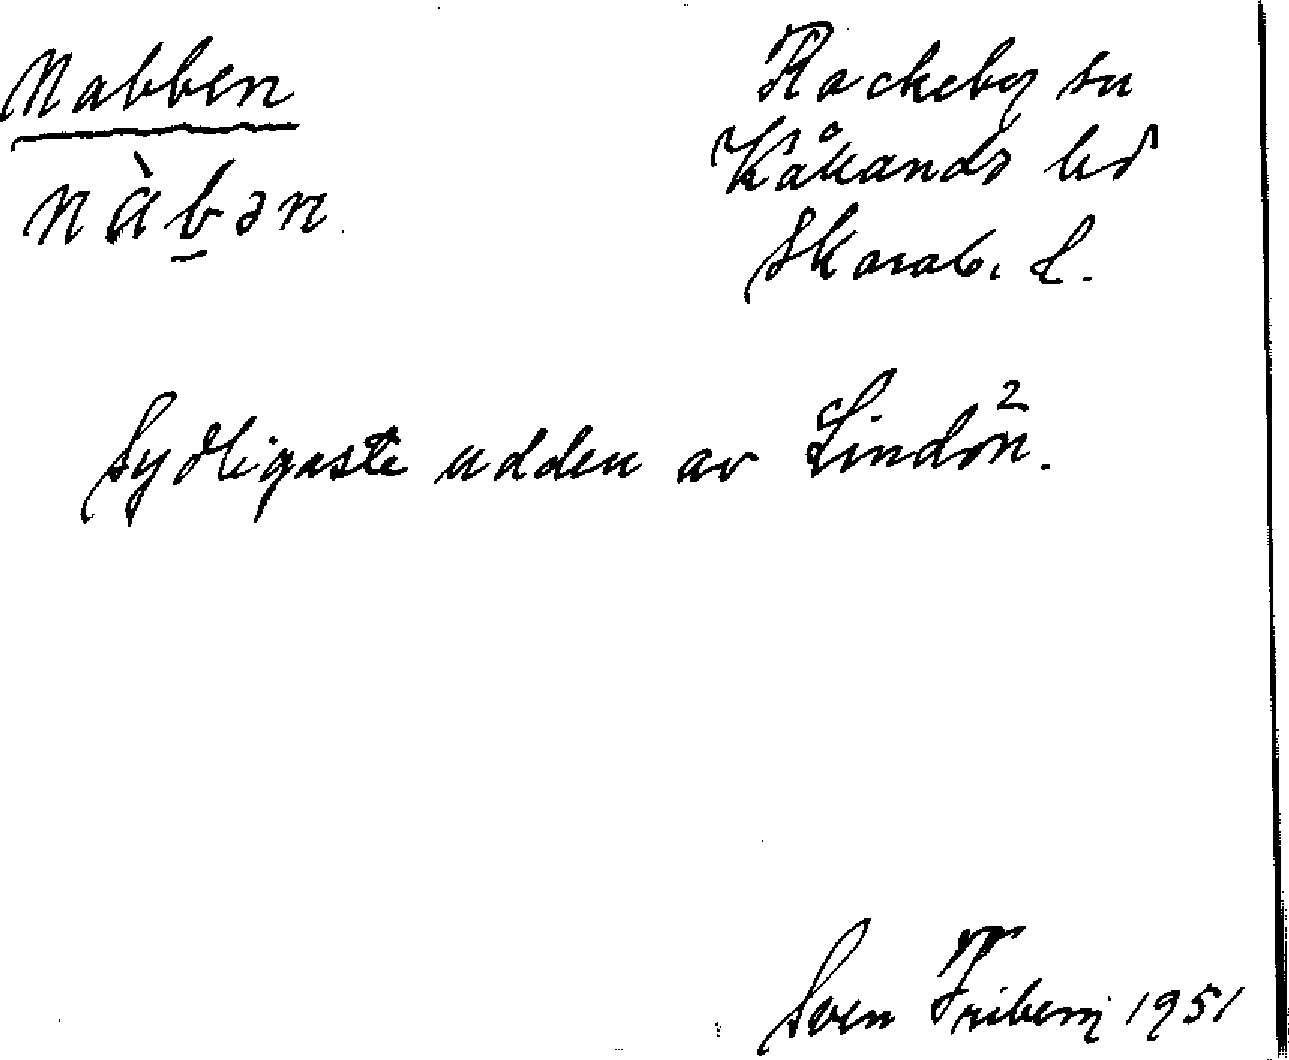 Nabben
Rackeby sn
nàb̲ən.
Kålands hd
Skarab. l.
Sydligaste udden av Lindön².
Sven Friberg 1951